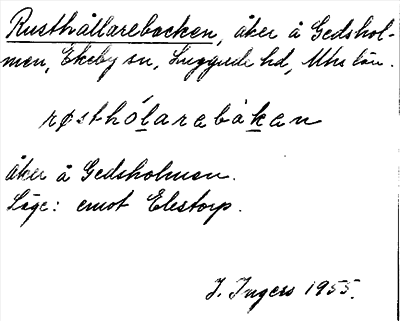 Rusthållarebacken, åker å Gedshol-
men, Ekeby sn, Luggude hd, Mhs län.
røsthólarebàkan
åker å Gedsholmen.
Läge: emot Elestorp.
J. Ingers 1955.